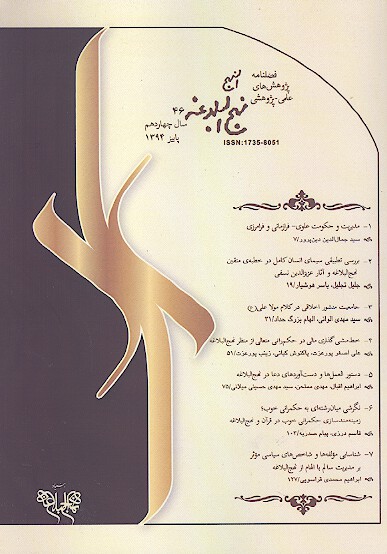 فصلنامه
پژوهش‌های
علمی-پژوهشی
نهج البلاغه
۴۶
سال چهاردهم
پاییز ۱۳۹۴
ISSN:1735-8051
۱- مدیریت و حکومت علوی- فرازمانی و فرامرزی
سید جمال‌الدین دین‌پرور/۷
۲- بررسی تطبیقی سیمای انسان کامل در خطبه‌ی متقین
نهج‌البلاغه و آثار عزیزالدین نسفی
جلیل تجلیل، یاسر هوشیار/۱۹
۳- جامعیت منشور اخلاقی در کلام مولا علی(ع)
سید مهدی الوانی، الهام بزرگ حداد/۳۱
۴- خط‌مشی گذاری مالی در حکم‌رانی متعالی از منظر نهج‌البلاغه
علی اصغر پورعزت، پاکنوش کیانی، زینب پورعزت/۵۱
۵- دستور العمل‌ها و دست‌آوردهای دعا در نهج‌البلاغه
ابراهیم اقبال، مهدی مصلحی، سید مهدی حسینی میلانی/۷۵
۶- نگرشی میان‌رشته‌ای به حکمرانی خوب؛
زمینه‌مندسازی حکمرانی خوب در قرآن و نهج‌البلاغه
قاسم درزی، پیام صدریه/۱۰۳
۷- شناسایی مؤلفه‌ها و شاخص‌های سیاسی مؤثر
بر مدیریت سالم با الهام از نهج‌البلاغه
ابراهیم محمدی قراسویی/۱۲۷